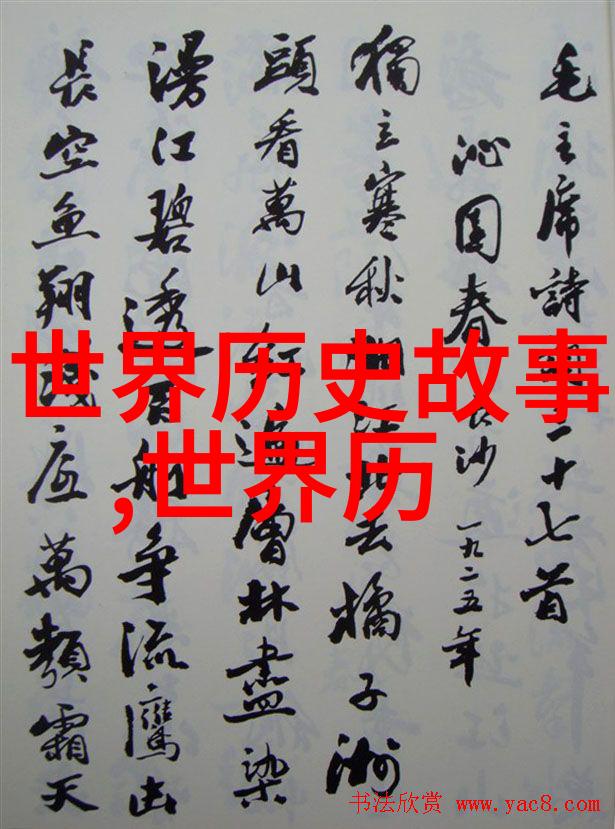 毛主席詩詞三十七首
沁園春 長沙 一九二五年
獨立寒秋湘江北去橘子洲
頭看萬山紅遍層林盡染
漫江碧透百舸争流鷹击
長空魚翔淺底萬類霜天
世界历史故事
,世界历
书法欣赏 www.yac8.com